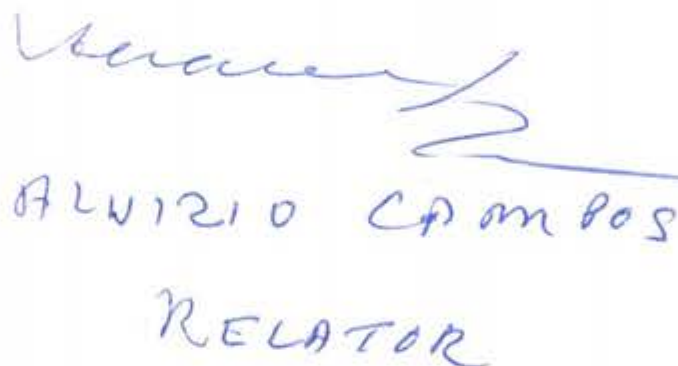 ALUIZIO CAMPOS
RELATOR